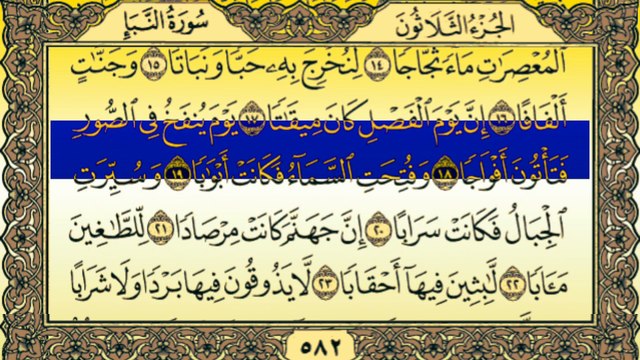 سُورَةُ النَّبَإِ الجُزْءُ الثَّلَاثُونَ
ٱلْمُعْصِرَٰتِ مَآءً ثَجَّاجًا ١٤ لِّنُخْرِجَ بِهِۦ حَبًّا وَنَبَاتًا ١٥ وَجَنَّٰتٍ
أَلْفَافًا ١٦ إِنَّ يَوْمَ ٱلْفَصْلِ كَانَ مِيقَٰتًا ١٧ يَوْمَ يُنفَخُ فِى ٱلصُّورِ
فَتَأْتُونَ أَفْوَاجًا ١٨ وَفُتِحَتِ ٱلسَّمَآءُ فَكَانَتْ أَبْوَٰبًا ١٩ وَسُيِّرَتِ
ٱلْجِبَالُ فَكَانَتْ سَرَابًا ٢٠ إِنَّ جَهَنَّمَ كَانَتْ مِرْصَادًا ٢١ لِّلطَّٰغِينَ
مَـَٔابًا ٢٢ لَّٰبِثِينَ فِيهَآ أَحْقَابًا ٢٣ لَّا يَذُوقُونَ فِيهَا بَرْدًا وَلَا شَرَابًا
٥٨٢